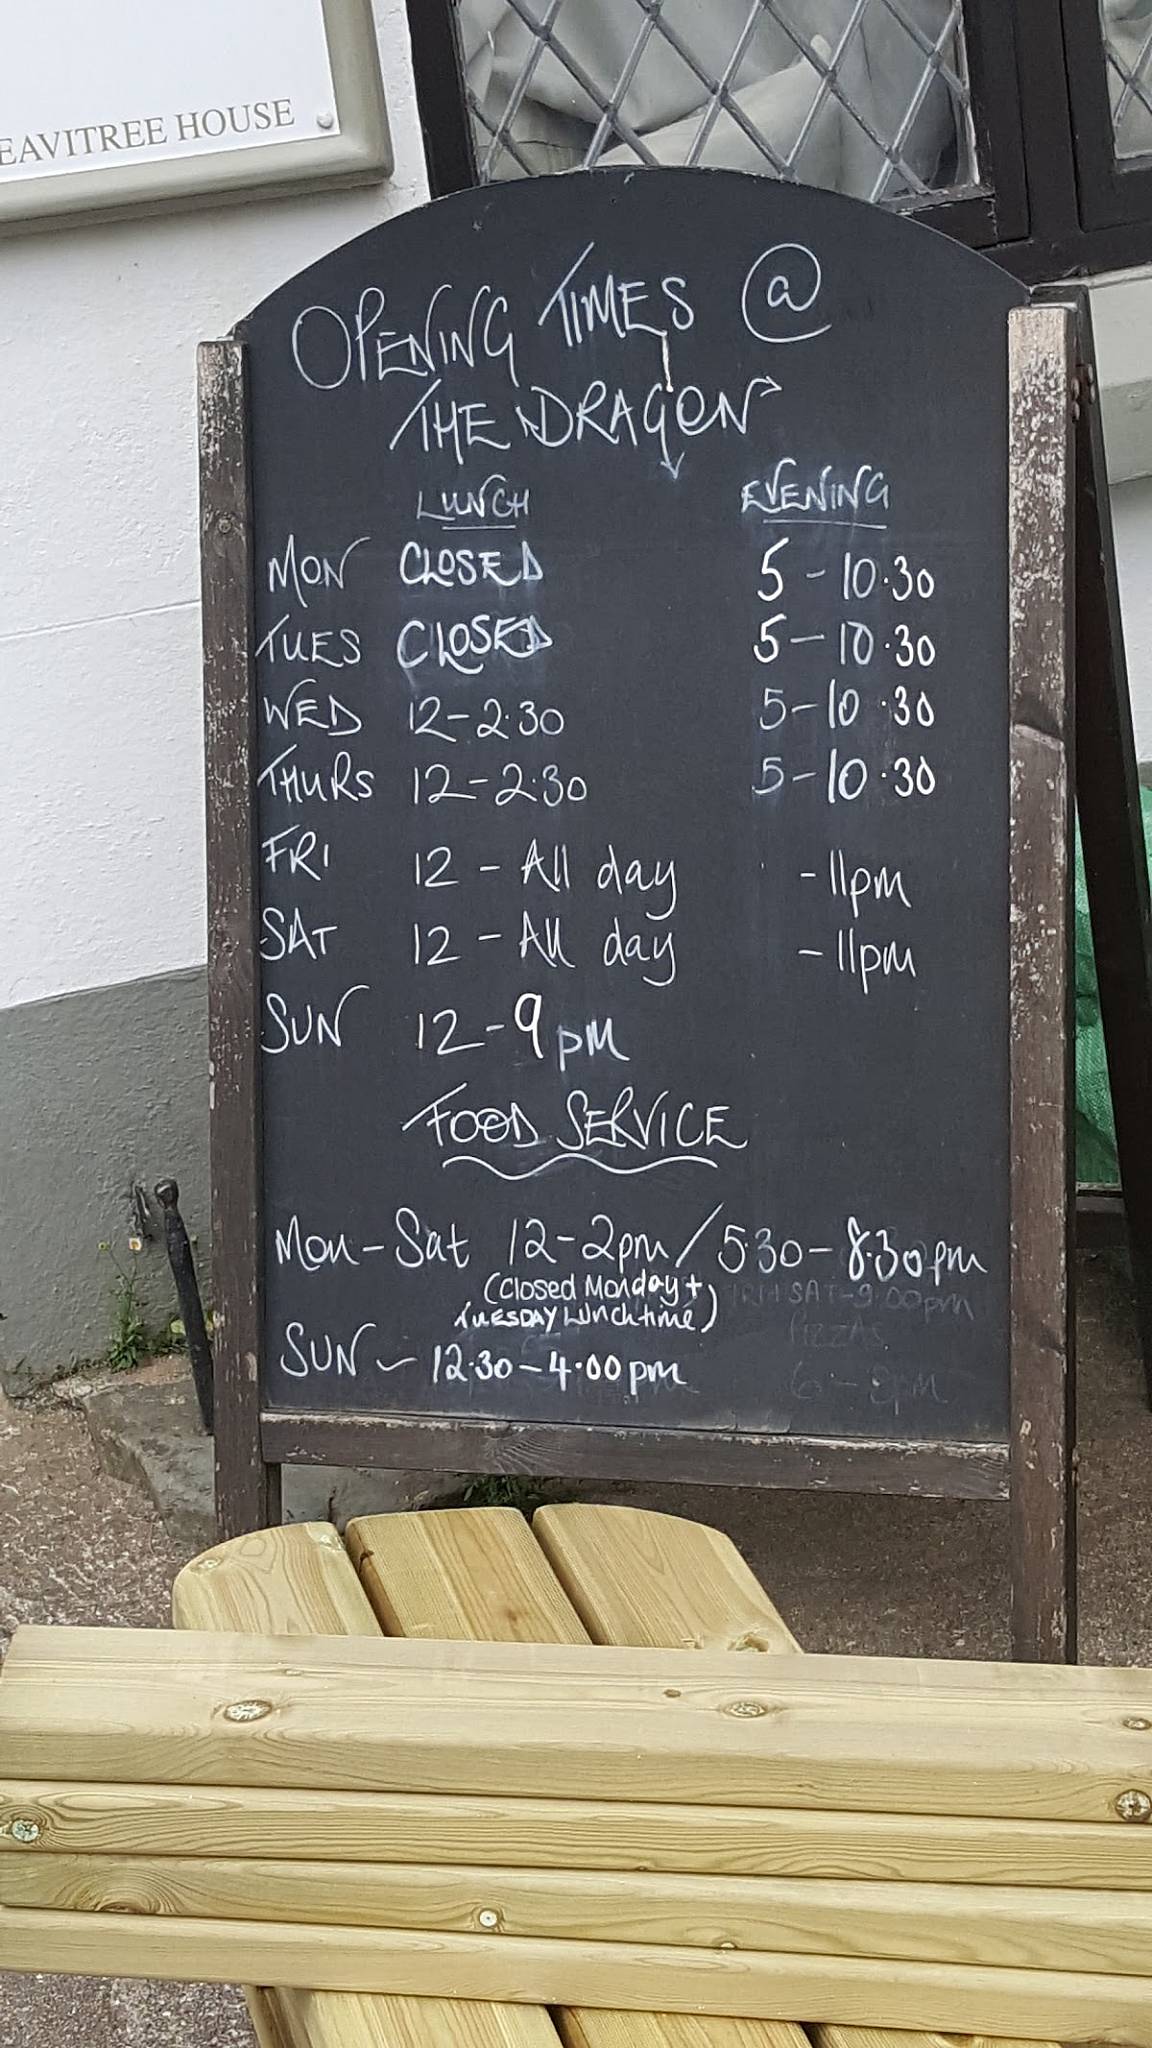 EAVITREE HOUSE
OPENING TIMES @
THE DRAGON
LUNCH EVENING
MON CLOSED 5-10.30
TUES CLOSED 5-10.30
WED 12-2.30 5-10.30
THURS 12-2.30 5-10.30
FRI 12 - All day - 11pm
SAT 12 - All day - 11pm
SUN 12-9pm
FOOD SERVICE
Mon-Sat 12-2pm/5.30-8.30pm
(Closed Monday +
TUESDAY Lunchtime) SAT-9.00pm
PIZZAS
SUN - 12.30-4.00pm